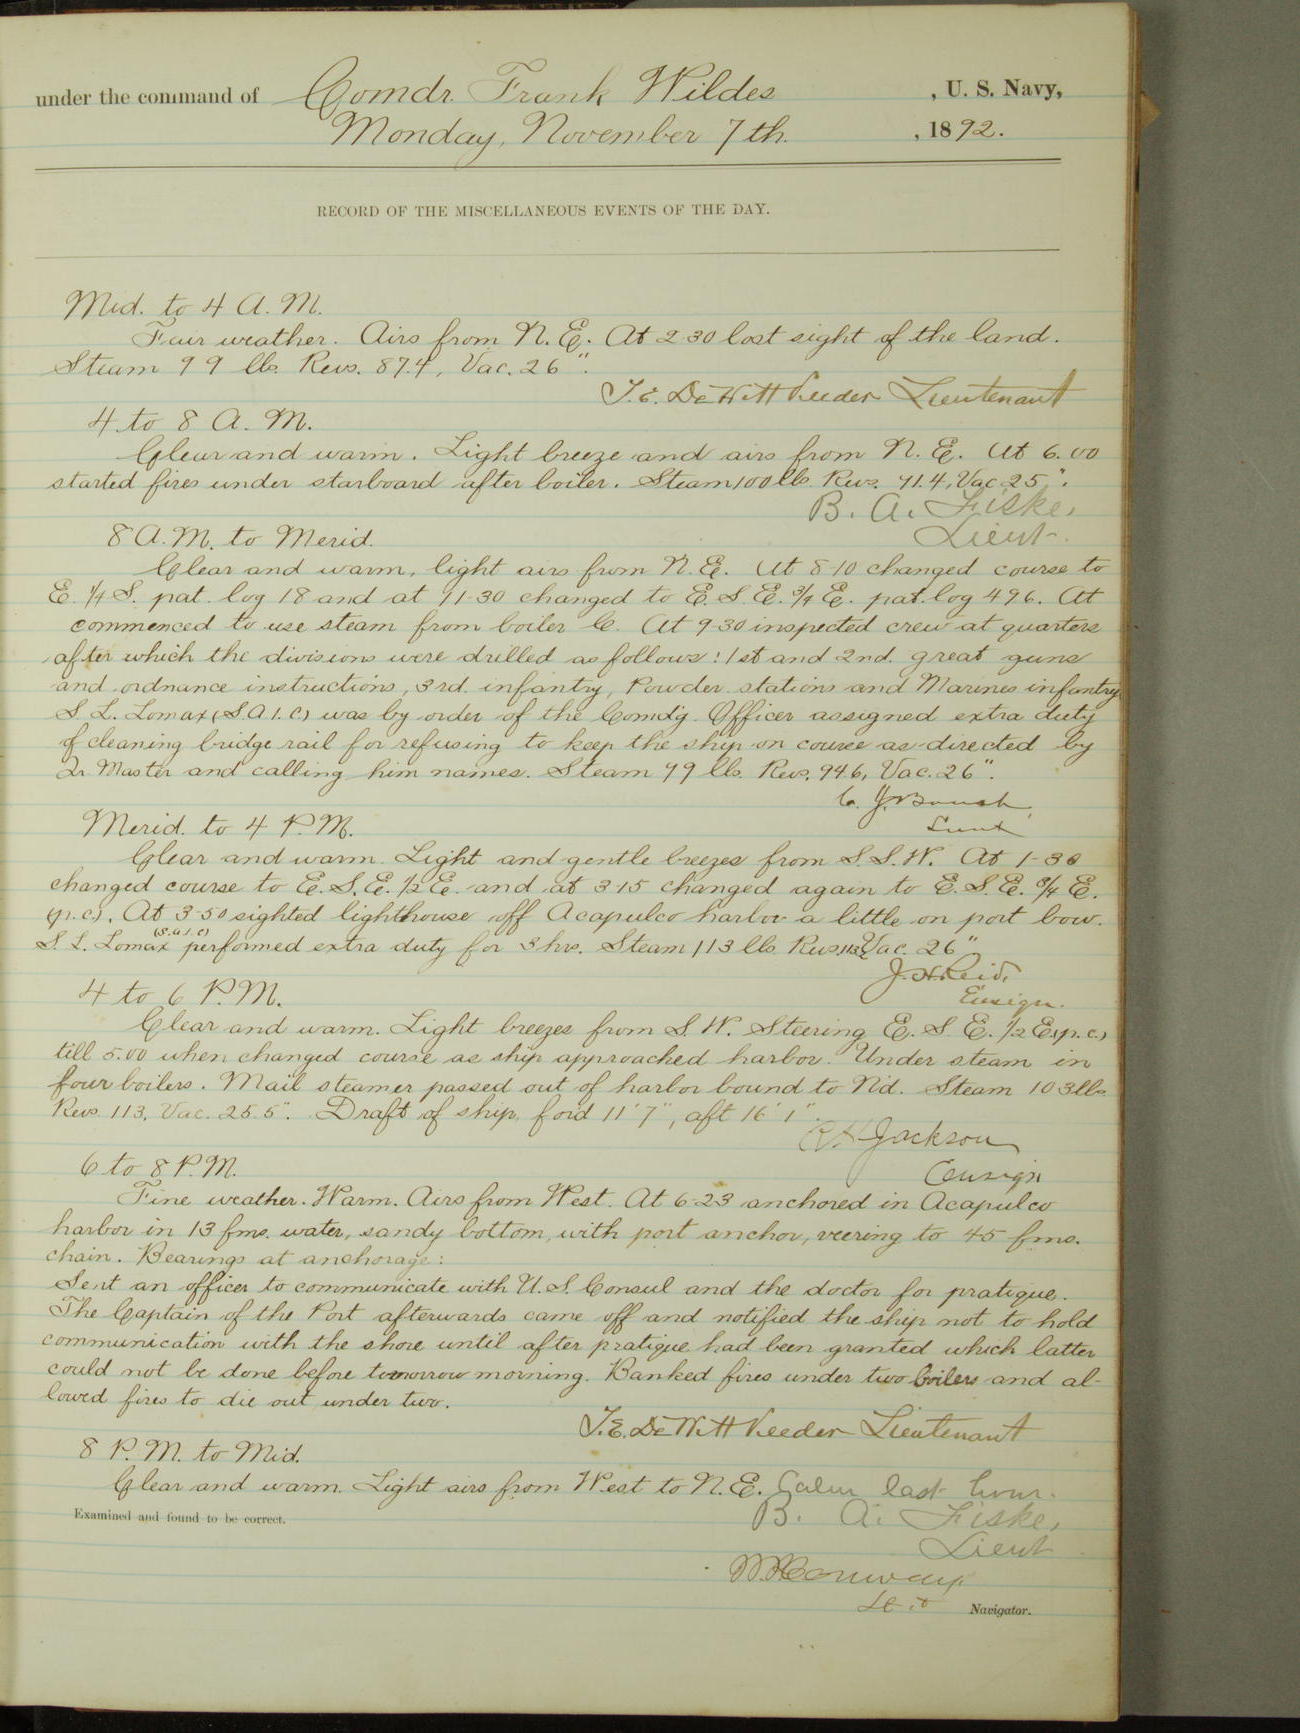 under the command of Comdr. Frank Wildes , U. S. Navy,
Monday, November 7th. , 1892.
RECORD OF THE MISCELLANEOUS EVENTS OF THE DAY.
Mid. to 4 A. M.
Fair weather. Airs from N. E. At 2 30 lost sight of the land.
Steam 99 lbs. Revs. 87.4, Vac. 26".
T. E. DeWitt Veeder Lieutenant
4 to 8 A. M.
Clear and warm. Light breeze and airs from N. E. At 6.00
started fires under starboard after boiler. Steam 100 lbs. Revs. 91.4, Vac 25".
B. A. Fiske,
Lieut.
8 A. M. to Merid.
Clear and warm, light airs from N. E. At 8-10 changed course to
E. 1/4 S. pat. log 18 and at 11-30 changed to E. S. E. 3/4 E. pat. log 49.6. At
commenced to use steam from boiler C. At 9-30 inspected crew at quarters
after which the divisions were drilled as follows: 1st and 2nd. great guns
and ordnance instructions, 3rd. infantry, Powder stations and Marines infantry
S. L. Lomax (S.A.1.C.) was by order of the Comd'g. Officer assigned extra duty
of cleaning bridge rail for refusing to keep the ship on course as directed by
Qr. Master and calling him names. Steam 99 lbs. Revs. 94.6, Vac. 26".
C. J. Boush,
Lieut
Merid. to 4 P. M.
Clear and warm. Light and gentle breezes from S. S. W. At 1-30
changed course to E. S. E. 1/2 E. and at 3-15 changed again to E. S. E. 3/4 E.
(p. c.). At 3-50 sighted lighthouse off Acapulco harbor a little on port bow.
S. L. Lomax (S.A.1.C) performed extra duty for 3 hrs. Steam 113 lbs. Revs. Vac. 26"
J. H. Reid,
Ensign.
4 to 6 P. M.
Clear and warm. Light breezes from S. W. Steering E. S. E. 1/2 E. (p. c.)
till 5.00 when changed course as ship approached harbor. Under steam in
four boilers. Mail steamer passed out of harbor bound to N'd. Steam 103 lbs
Revs. 113, Vac. 25.5". Draft of ship, for'd 11' 7", aft 16' 1".
R. H. Jackson
Ensign
6 to 8 P. M.
Fine weather. Warm. Airs from West. At 6-23 anchored in Acapulco
harbor in 13 fms. water, sandy bottom, with port anchor, veering to 45 fms.
chain. Bearings at anchorage:
Sent an officer to communicate with U. S. Consul and the doctor for pratique.
The Captain of the Port afterwards came off and notified the ship not to hold
communication with the shore until after pratique had been granted which latter
could not be done before tomorrow morning. Banked fires under two boilers and al-
lowed fires to die out under two.
T. E. DeWitt Veeder Lieutenant
8 P. M. to Mid.
Clear and warm. Light airs from West to N. E. Calm last hour.
Examined and found to be correct.
B. A. Fiske,
Lieut
Conway
Navigator.